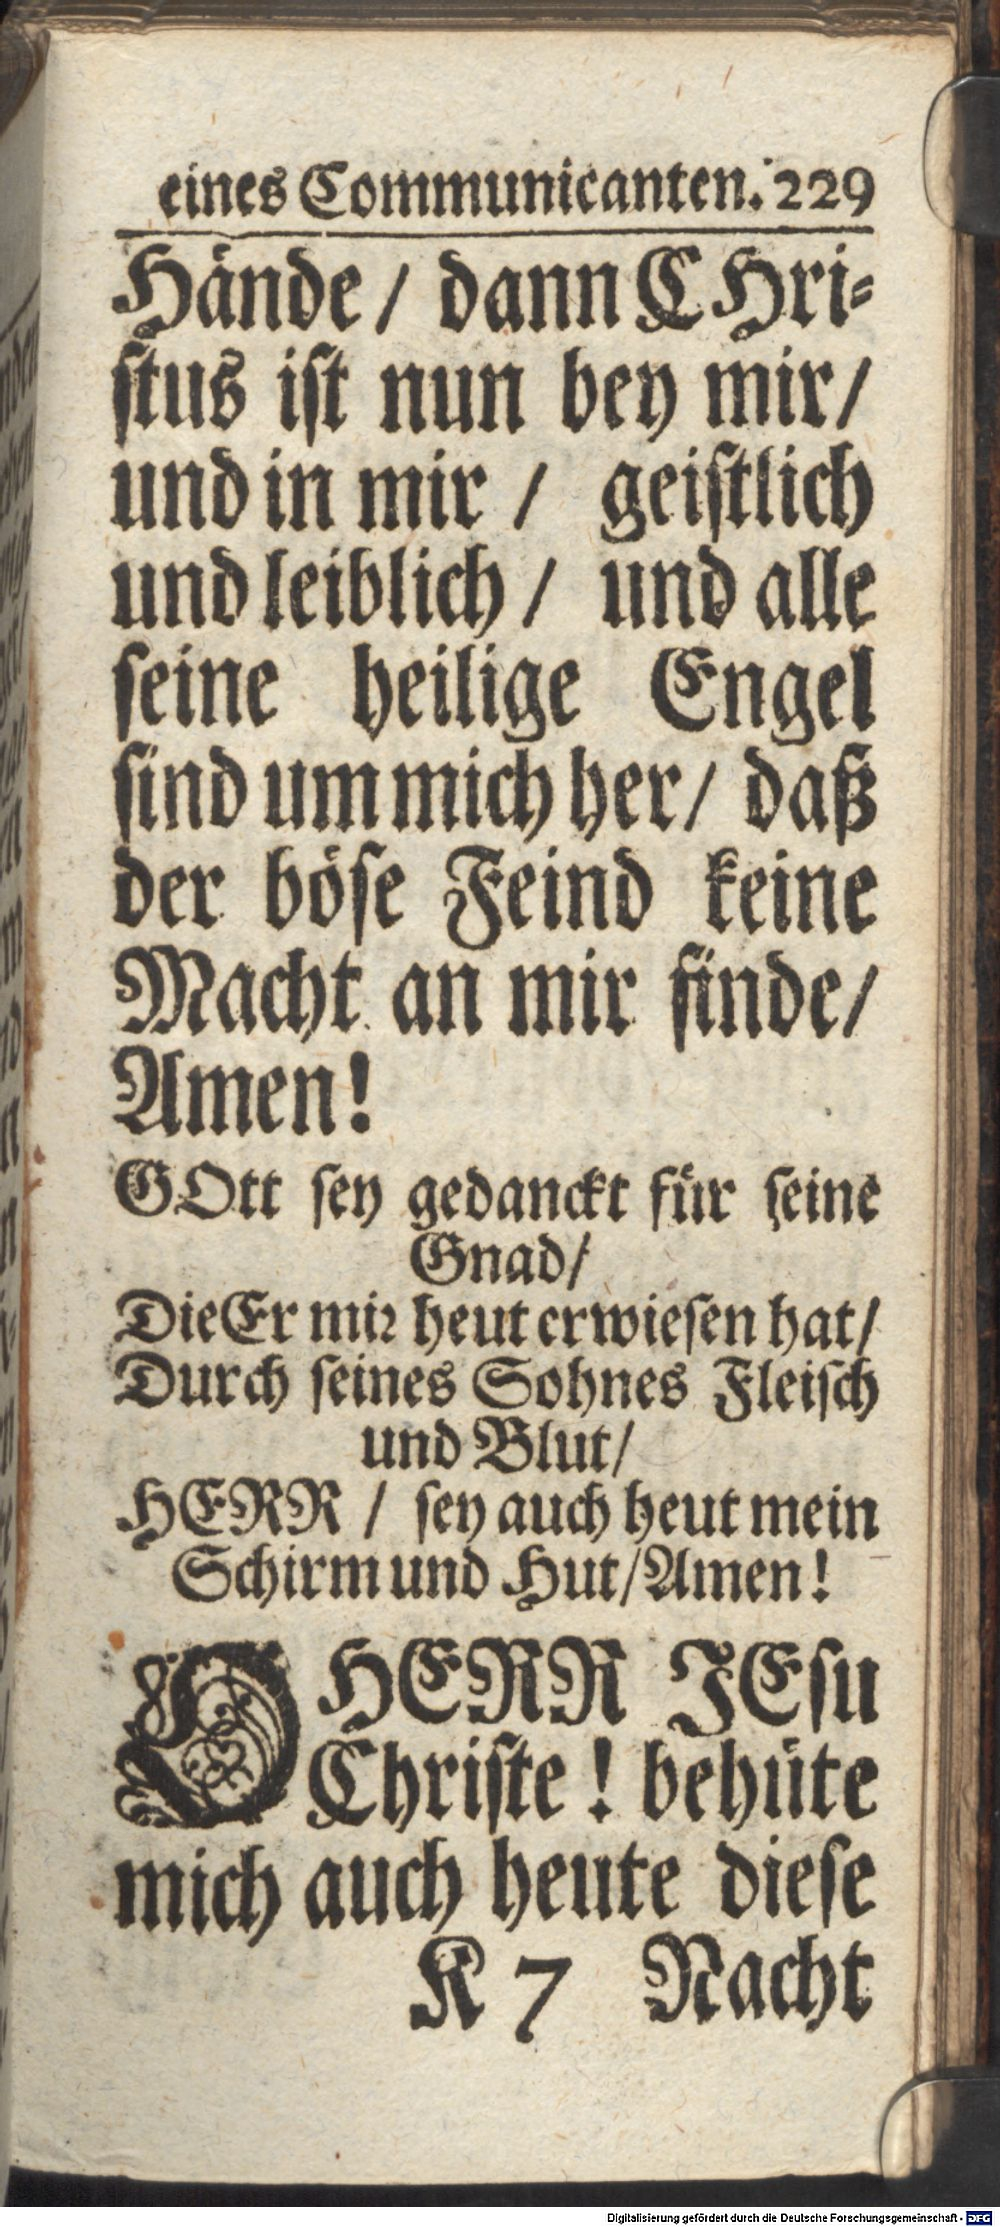 eines Communicanten. 229
Hände / dann CHri-
stus ist nun bey mir /
und in mir / geistlich
und leiblich / und alle
seine heilige Engel
sind um mich her / daß
der böse Feind keine
Macht an mir finde /
Amen!
GOtt sey gedanckt für seine
Gnad /
Die Er mir heut erwiesen hat /
Durch seines Sohnes Fleisch
und Blut /
HERR / sey auch heut mein
Schirm und Hut / Amen!
O HERR JEsu
Christe! behüte
mich auch heute diese
K 7 Nacht
Digitalisierung gefördert durch die Deutsche Forschungsgemeinschaft - DFG